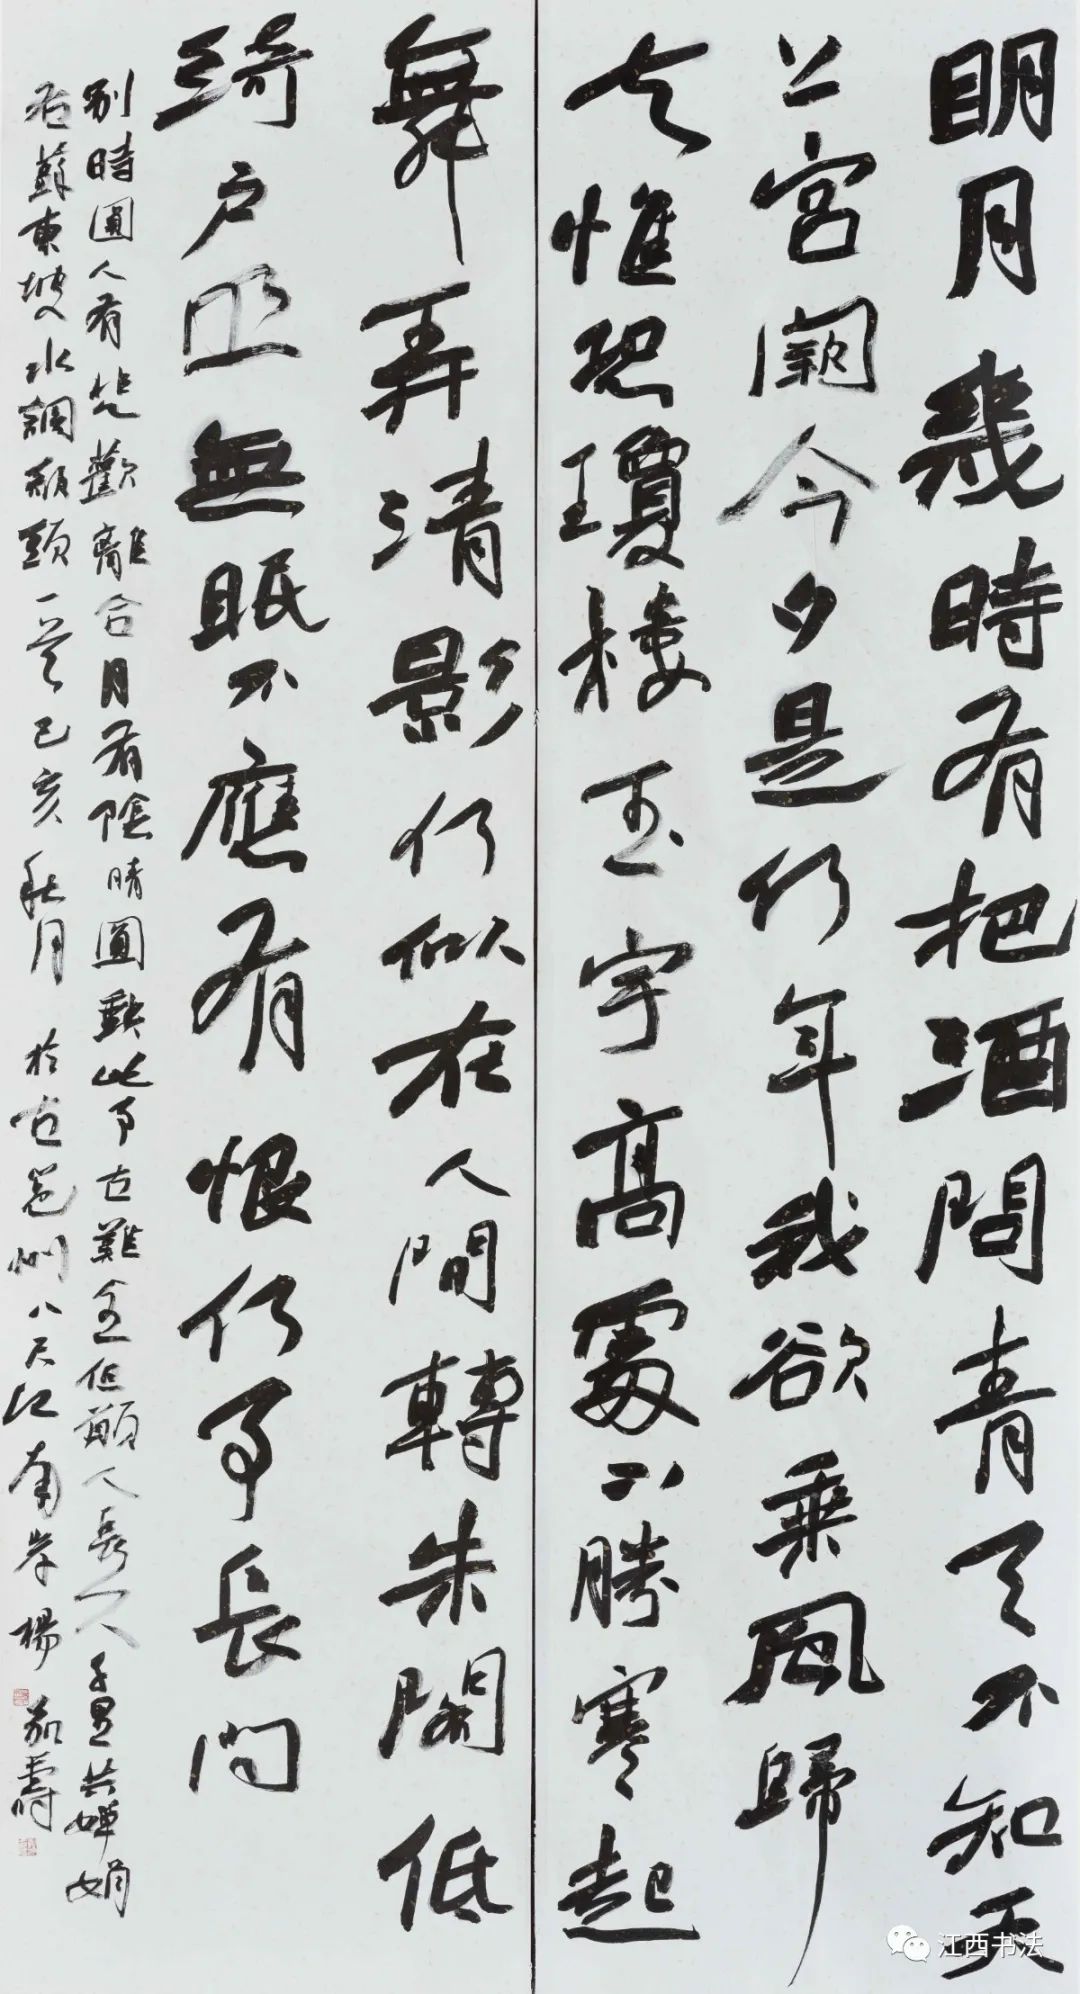 明月幾時有把酒問青天不知天
上宮闕今夕是何年我欲乘風歸
去惟恐瓊樓玉宇高處不勝寒起
舞弄清影何似在人間轉朱閣低
綺戶照無眠不應有恨何事長向
別時圓人有悲歡離合月有陰晴圓缺此事古難全但願人長久千里共嬋娟
右蘇東坡水調歌頭一首己亥秋月於古邕州八尺江南岸楊壽
江西书法